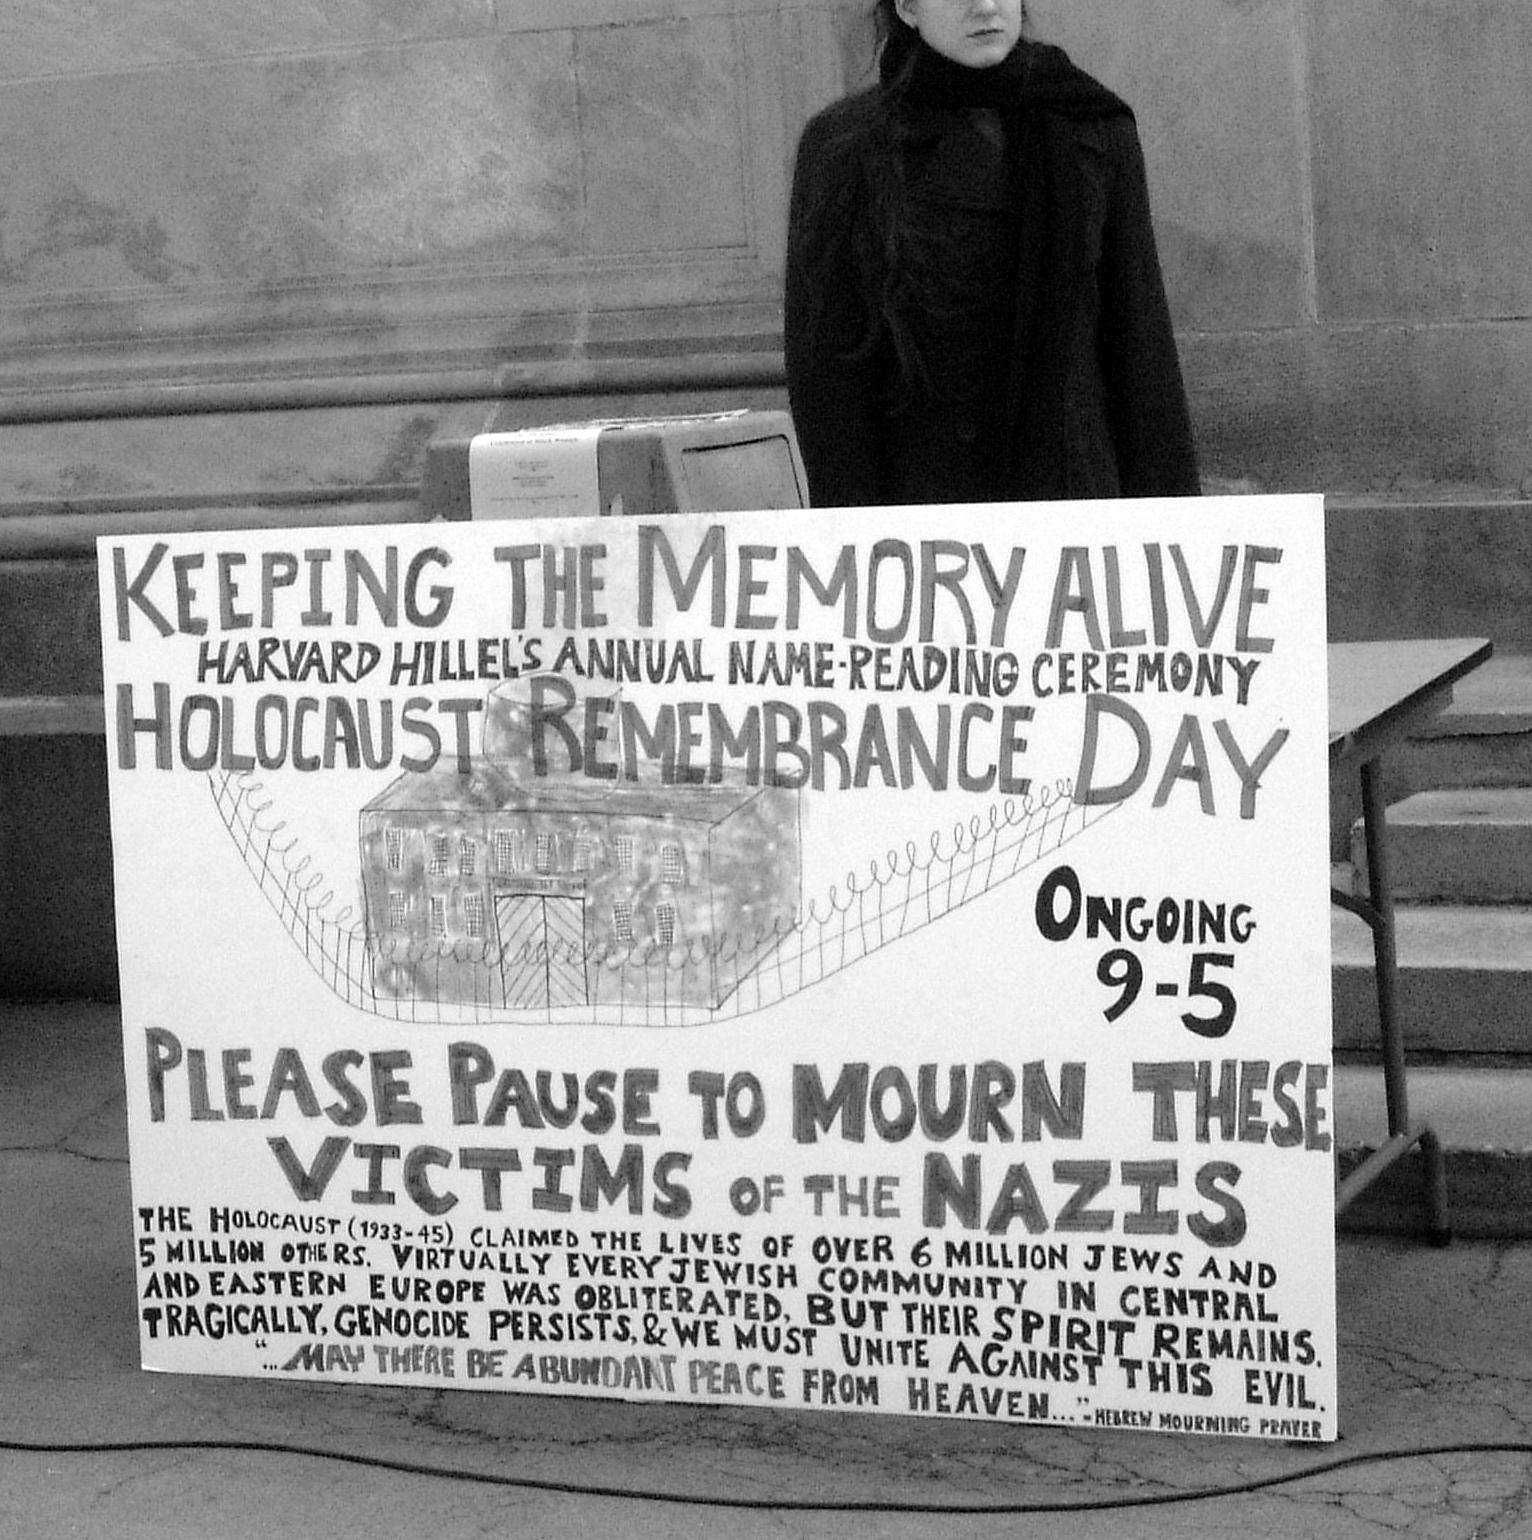 KEEPING THE MEMORY ALIVE
HARVARD HILLEL'S ANNUAL NAME-READING CEREMONY
HOLOCAUST REMEMBRANCE DAY
ONGOING
9-5
PLEASE PAUSE TO MOURN THESE
VICTIMS OF THE NAZIS
THE HOLOCAUST (1933-45) CLAIMED THE LIVES OF OVER 6 MILLION JEWS AND
5 MILLION OTHERS. VIRTUALLY EVERY JEWISH COMMUNITY IN CENTRAL
AND EASTERN EUROPE WAS OBLITERATED, BUT THEIR SPIRIT REMAINS.
TRAGICALLY, GENOCIDE PERSISTS, & WE MUST UNITE AGAINST THIS EVIL.
"...MAY THERE BE ABUNDANT PEACE FROM HEAVEN..." -HEBREW MOURNING PRAYER